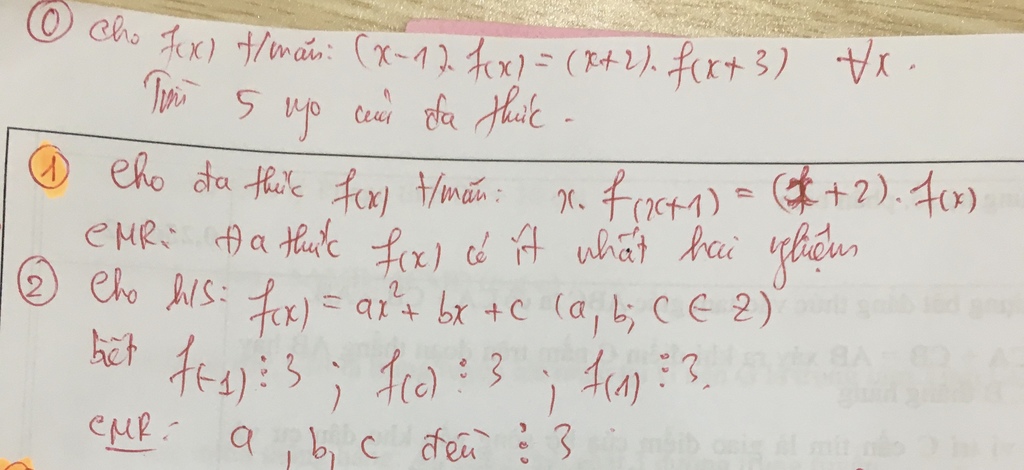 ⓪ Cho f(x) t/mãn: (x-1). f(x) = (x+2). f(x+3) ∀x.
Tìm 5 no của đa thức.
① Cho đa thức f(x) t/mãn: x. f(x+1) = (x+2). f(x)
CMR: Đa thức f(x) có ít nhất hai nghiệm
② Cho h/s: f(x) = ax² + bx + c (a, b, c ∈ Z)
biết f(-1) ⋮ 3 ; f(0) ⋮ 3 ; f(1) ⋮ 3.
CMR: a, b, c đều ⋮ 3